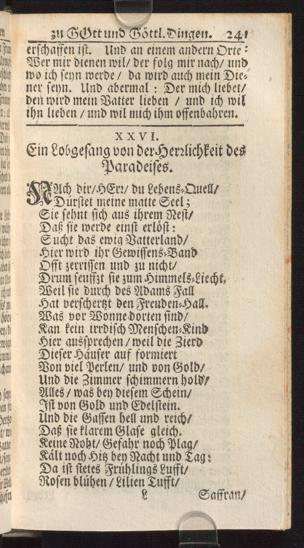 zu GOtt und Göttl. Dingen. 241
erschaffen ist. Und an einem andern Orte:
Wer mir dienen wil/ der folg mir nach/ und
wo ich seyn werde/ da wird auch mein Die-
ner seyn. Und abermal: Der mich liebet/
den wird mein Vatter lieben/ und ich wil
ihn lieben/ und wil mich ihm offenbahren.
XXVI.
Ein Lobgesang von der Herrlichkeit des
Paradeises.
NAch dir/ HErr/ du Lebens-Quell/
Dürstet meine matte Seel;
Sie sehnt sich aus ihrem Nest/
Daß sie werde einst erlöst:
Sucht das ewig Vatterland/
Hier wird ihr Gewissens-Band
Offt zerrissen und zu nicht/
Drum seuffzt sie zum Himmels-Liecht.
Weil sie durch des Adams Fall
Hat verschertzt den Freuden-Hall.
Was vor Wonne dorten sind/
Kan kein irrdisch Menschen-Kind
Hier aussprechen/ weil die Zierd
Dieser Häuser auf formiert
Von viel Perlen/ und von Gold/
Und die Zimmer schimmern hold/
Alles/ was bey diesem Schein/
Ist von Gold und Edelstein.
Und die Gassen hell und reich/
Daß sie klarem Glase gleich.
Keine Noht/ Gefahr noch Plag/
Kält noch Hitz bey Nacht und Tag:
Da ist stetes Frühlings Lufft/
Rosen blühen/ Lilien Tufft/
L Saffran/